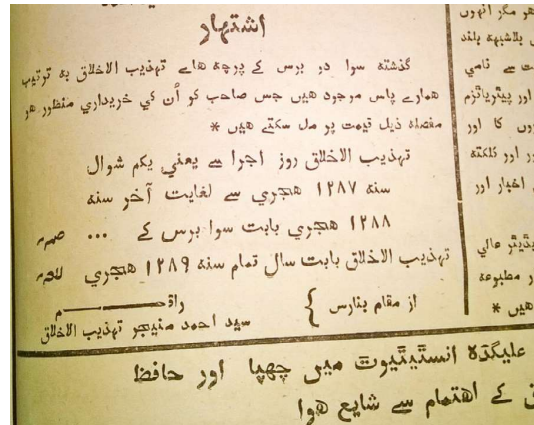 اشتہار
گذشتہ سوا دو برس کے پرچہ هاے تہذیب الاخلاق بہ ترتیب
همارے پاس موجود هیں جس صاحب کو اُن کي خریداري منظور هو
مفصلہ ذیل قیمت پر مل سکتے هیں *
تہذیب الاخلاق روز اجرا سے یعني یکم شوال
سنہ ۱۲۸۷ هجري سے لغایت آخر سنہ
۱۲۸۸ هجري بابت سوا برس کے ...
تہذیب الاخلاق بابت سال تمام سنہ ۱۲۸۹ هجري
راقم
از مقام بنارس }
سید احمد منیجر تہذیب الاخلاق
علیگڈہ انسٹیٹیوٹ میں چھپا اور حافظ
کے اهتمام سے شایع هوا
هو مگر انہوں
بلاشبہہ بلند
ت سے نامي
اور پیٹریاٹزم
وں کا اور
ور اور کلکتہ
اخبار اور
یڈیٹر عالي
ر مطبوعہ
هیں *